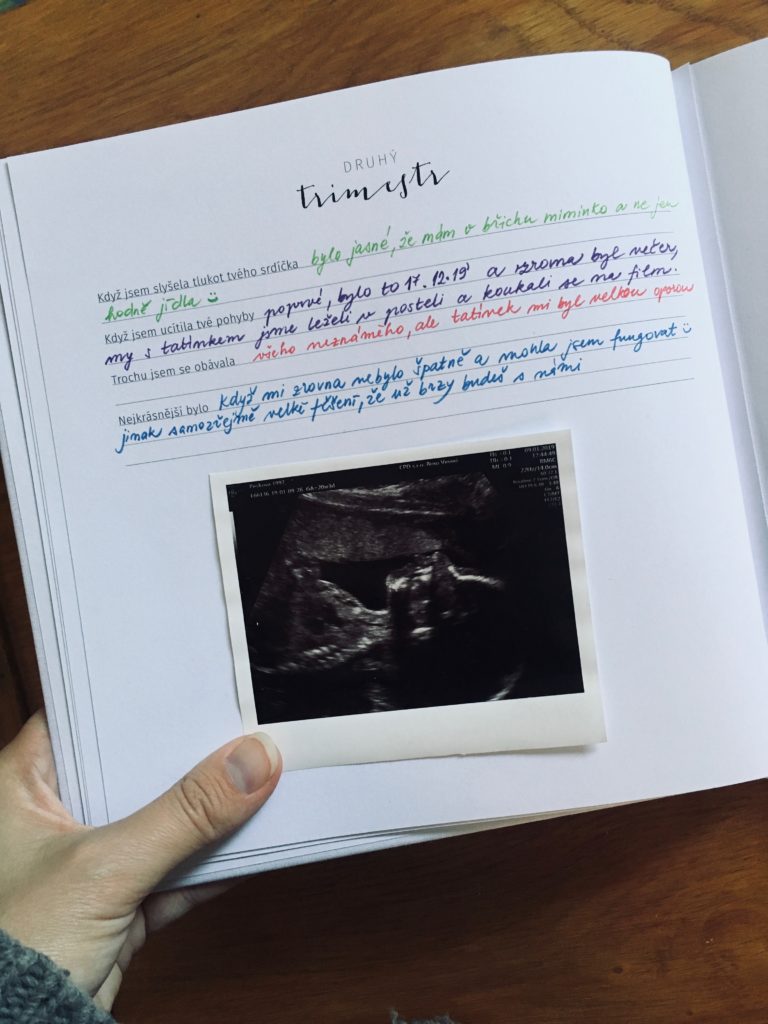 DRUHÝ
trimestr
Když jsem slyšela tlukot tvého srdíčka bylo jasné, že mám v břichu miminko a ne jen
hodně jídla
Když jsem ucítila tvé pohyby poprvé, bylo to 17.12.19 a zroma byl večer,
my s tatímkem jsme leželi v posteli a koukali se na film.
Trochu jsem se obávala všeho neznámého, ale tatínek mi byl velkou oporou
Nejkrásnější bylo když mi zrovna nebylo špatně a mohla jsem fungovat
jinak samozřejmě velké těšení, že už brzy budeš s námi
09.01.2019
17:44:49